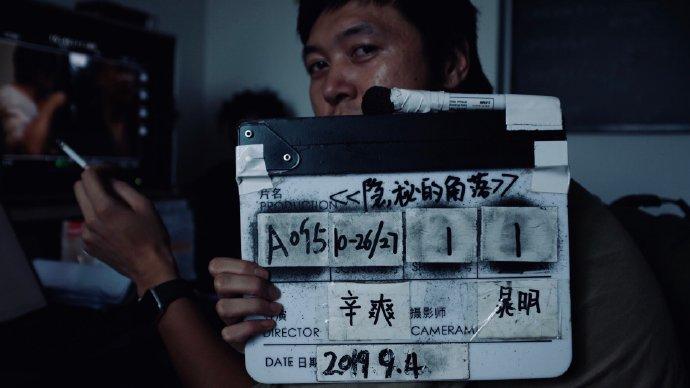 片名 <<隐秘的角落>>
PRODUCTION
A095 10-26/27 1 1
辛爽 摄影师 晁明
DIRECTOR CAMERAM
DATE 日期 2019.9.4